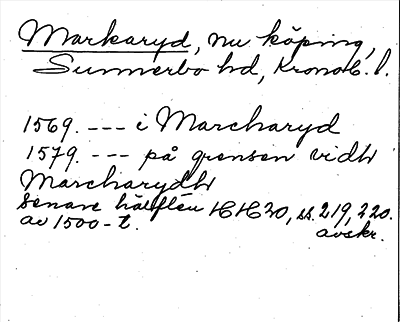 Markaryd, nu köping,
Sunnerbo hd, Kronob. l.
1569. --- i Marcharyd
1579. --- på grensen vidh
Marcharydh
Senare hälften HH20, ss. 219, 220.
av 1500-t. avskr.